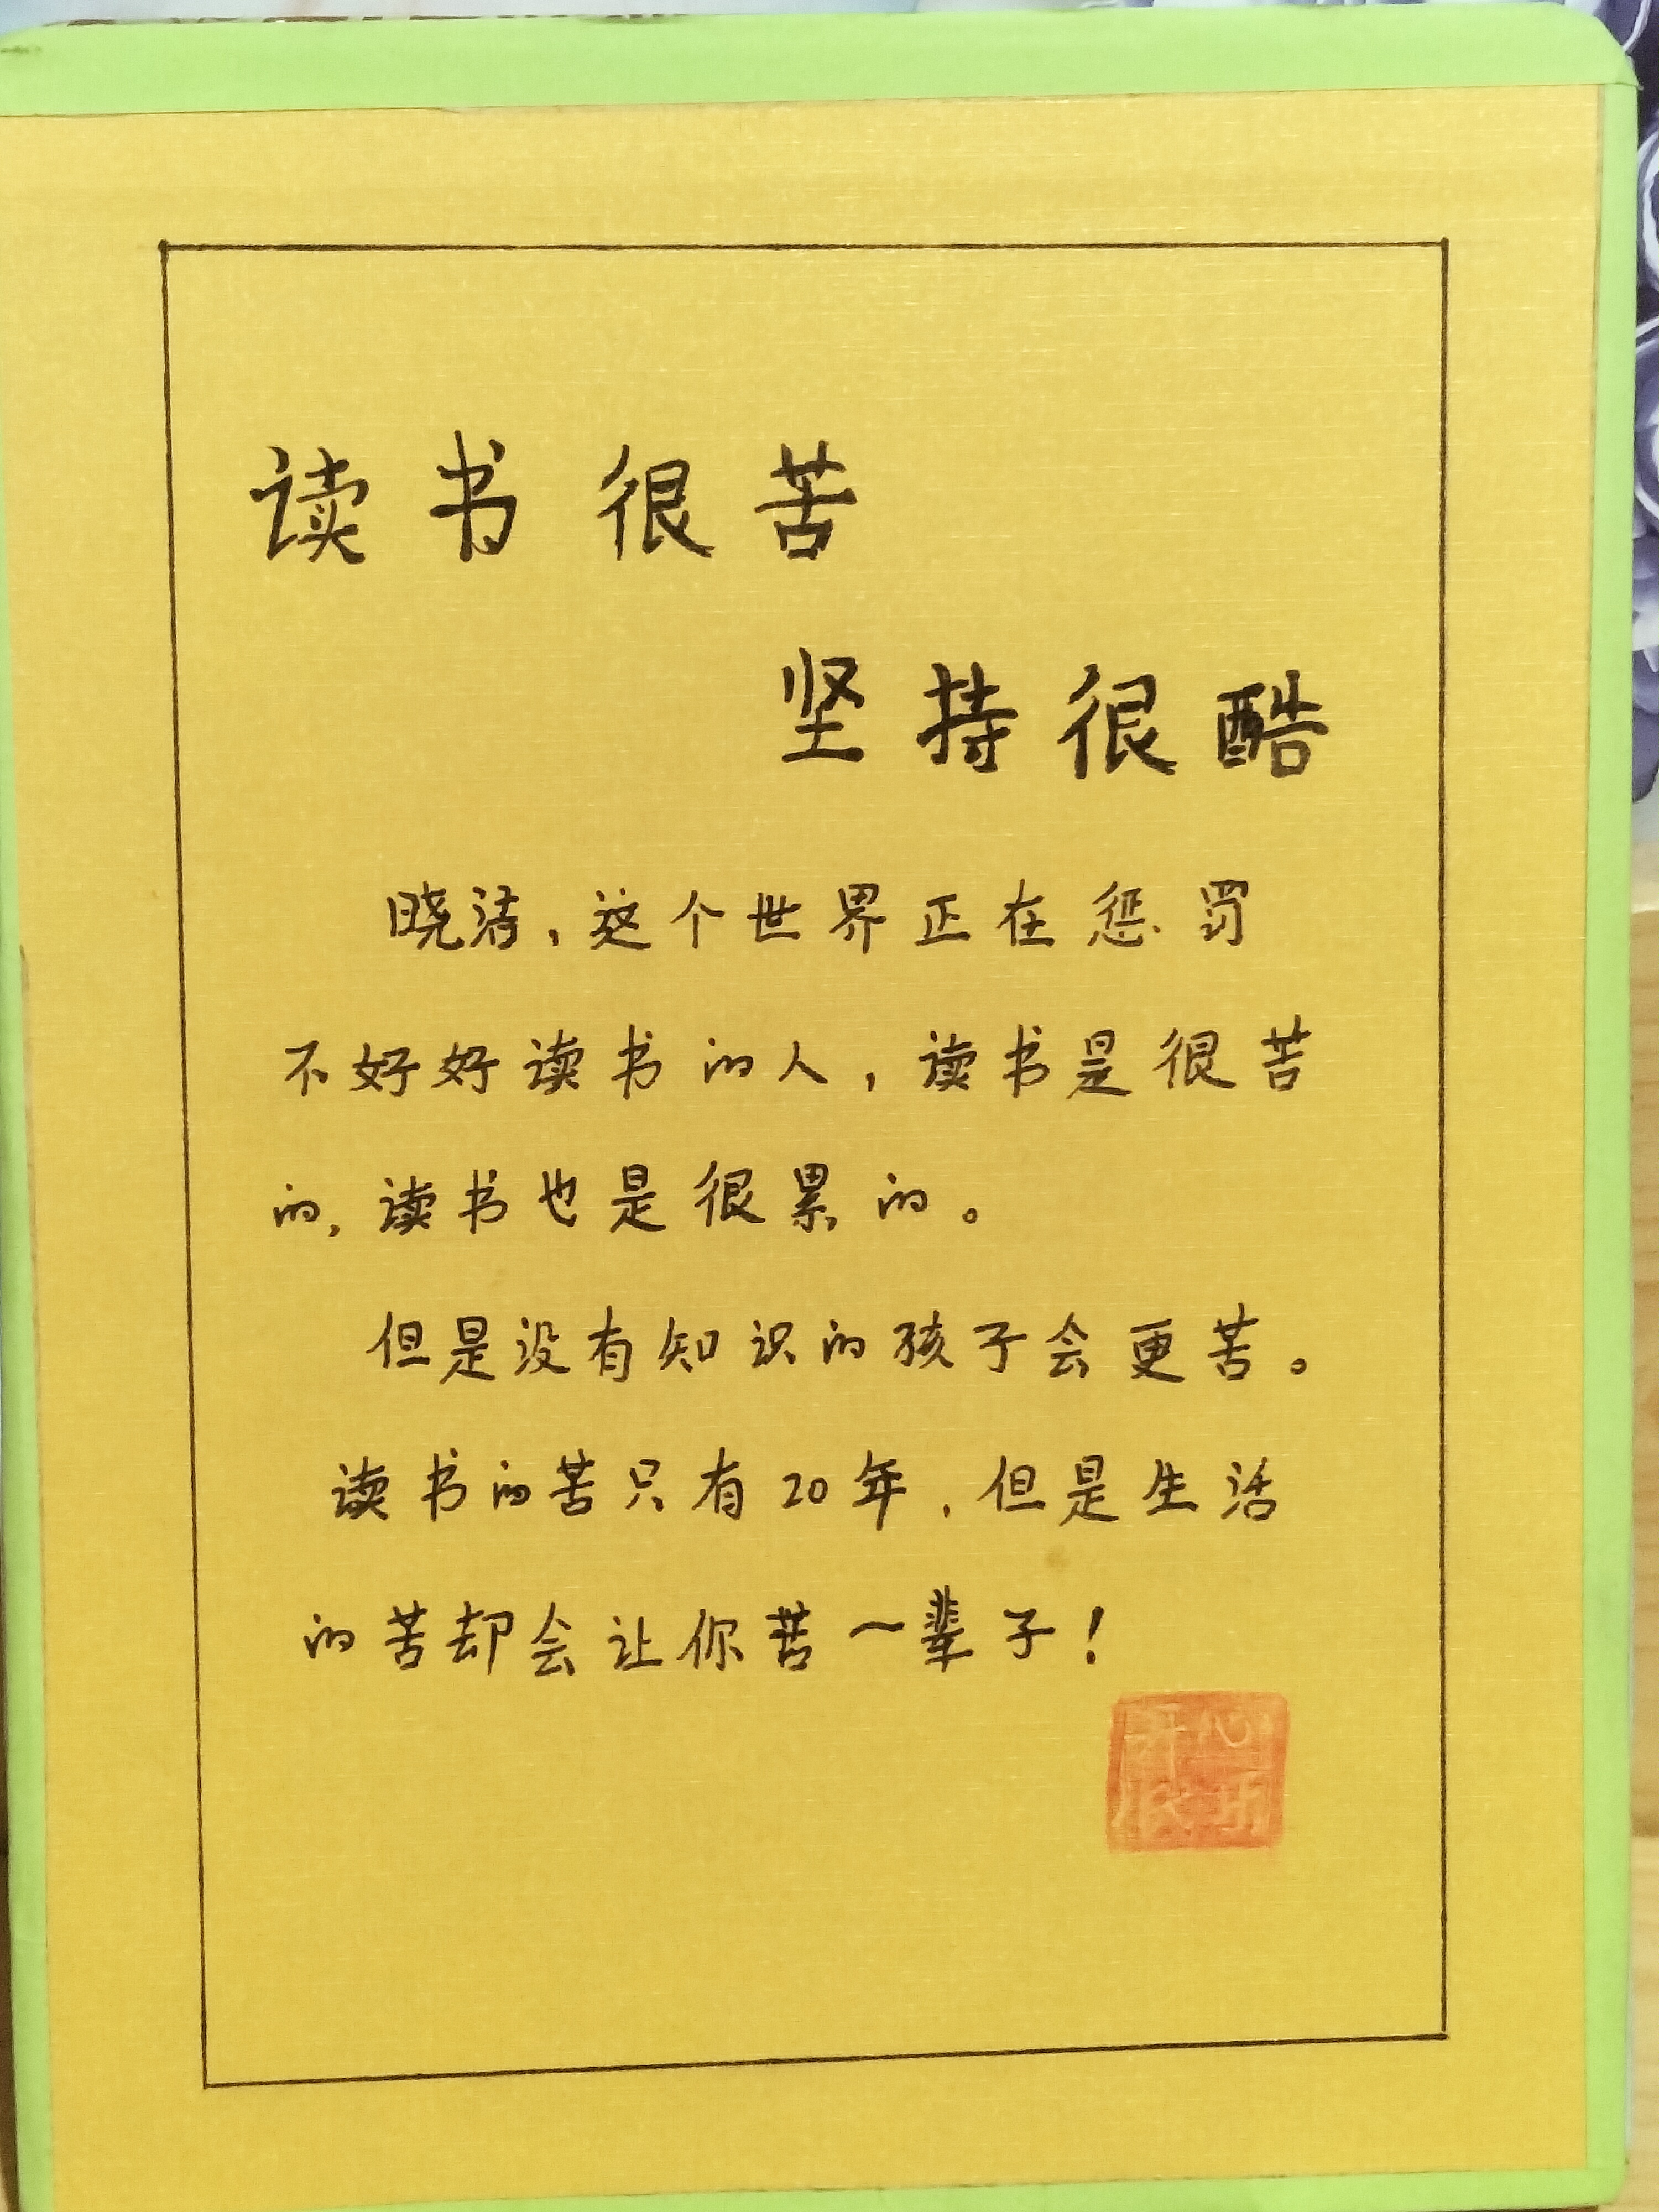 读书很苦
坚持很酷
晓清，这个世界正在惩罚
不好好读书的人，读书是很苦
的，读书也是很累的。
但是没有知识的孩子会更苦。
读书的苦只有20年，但是生活
的苦却会让你苦一辈子！